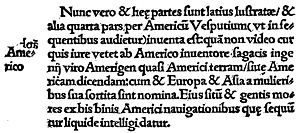 Nunc vero & hęę partes sunt latius lustratæ/ &
alia quarta pars per Americū Vesputium (vt in se
quentibus audietur) inuenta est: quā non video cur
quis iure vetet ab Americo inuentore sagacis inge
nij viro Amerigen quasi Americi terram/ siue Ame
ricam dicendam: cum & Europa & Asia a mulieri
bus sua sortita sint nomina. Eius sitū & gentis mo
res ex bis binis Americi nauigationibus quę sequū
tur liquide intelligi datur.
Ame-
rico